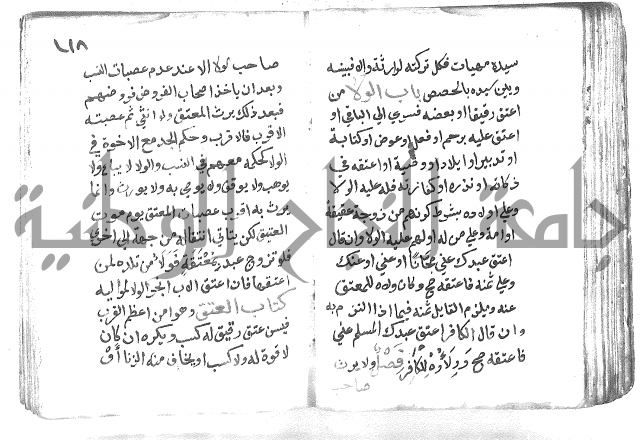 سيده مهيات فكل تركته لوارثه والا فبينه
وبين سيده بالحصص باب الولا من
اعتق رقيقا او بعضه فسرى الى الباقي او
اعتق عليه برحم او فعل او عوض او كتابة
او تدبير او ايلاد او وصية او اعتقه في
زكاته او نذره او كفارته فله عليه الولا
وعلى اولاده بشرط كونهم من زوجة عتيقة
او امة وعلى من له او لهم عليه الولا وان قال
اعتق عبدك عني مجانا او عني او عنك
وعلي ثمنه فاعتقه صح وكان ولاه للمعتق
عنه ويلزم القايل ثمنه فيما اذا التزم به
وان قال الكافر اعتق عبدك المسلم عني
فاعتقه صح وولاؤه للكافر فصل ولا يرث
صاحب
٢١٨
صاحب الولا الا عند عدم عصبات النسب
وبعد ان ياخذ اصحاب الفروض فروضهم
فبعد ذلك يرث المعتق ولو انثى ثم عصبته
الاقرب فالاقرب وحكم الجد مع الاخوة في
الولا كحكمه معهم في النسب والولا لا يباع ولا
يوهب ولا يوقف ولا يوصى به ولا يورث وانما
يرث به اقرب عصبات المعتق يوم موت
العتيق لكن يتاتى انتقاله من جهة الى اخرى
فلو تزوج عبد بمعتقة فولا من تلده لمن
اعتقها فان اعتق الاب انجر الولا لمواليه
كتاب العتق وهو من اعظم القرب
فيسن عتق رقيق له كسب ويكره ان كان
لا قوة له ولا كسب او يخاف منه الزنا او
جامعة النجاح الوطنية